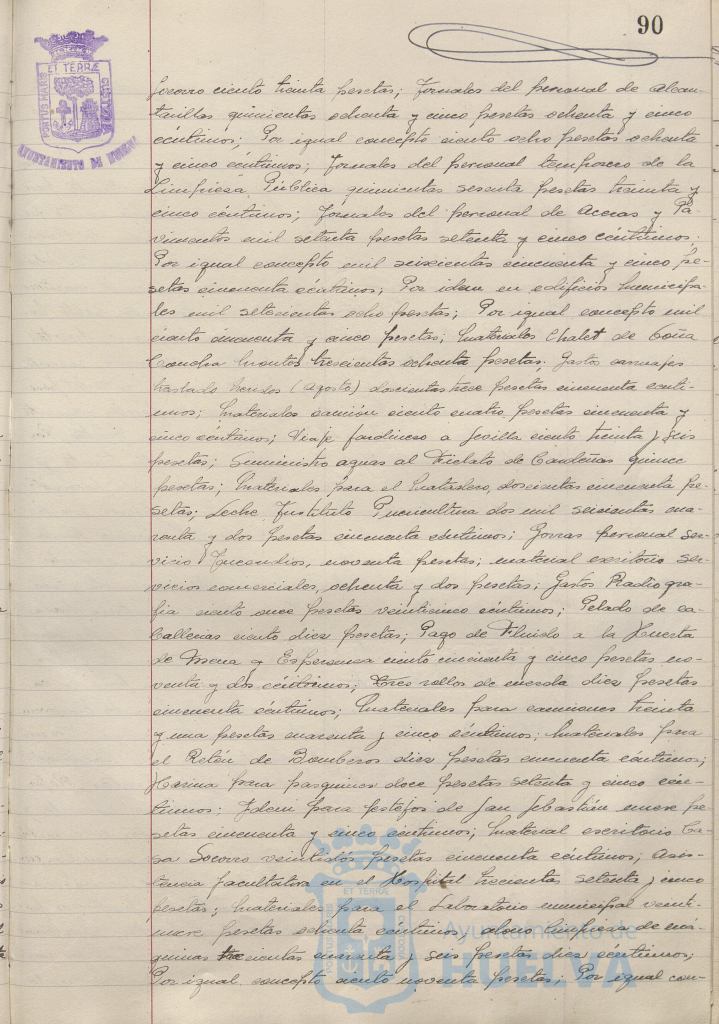 90
ET TERRÆ
PORTUS MARIS
CUSTODIA
AYUNTAMIENTO DE HUELVA
Socorro ciento treinta pesetas; Jornales del personal de alcan-
tarillas quinientas ochenta y cinco pesetas ochenta y cinco
céntimos; Por igual concepto ciento ocho pesetas ochenta
y cinco céntimos; Jornales del personal temporero de la
Limpieza Pública quinientas sesenta pesetas treinta y
cinco céntimos; Jornales del personal de Aceras y Pa-
vimentos mil setenta pesetas setenta y cinco céntimos;
Por igual concepto mil seiscientas cincuenta y cinco pe-
setas cincuenta céntimos; Por idem en edificios municipa-
les mil setecientas ocho pesetas; Por igual concepto mil
ciento cincuenta y cinco pesetas; Materiales Chalet de Doña
Concha trescientas ochenta pesetas; Gastos carruajes
traslado (Agosto) doscientas trece pesetas cincuenta cénti-
mos; Materiales camión ciento cuatro pesetas cincuenta y
cinco céntimos; Viaje Jardinero a Sevilla ciento treinta y seis
pesetas; Suministro aguas al Fielato de Cardeñas quince
pesetas; Materiales para el Matadero, doscientas cincuenta pe-
setas; Leche Instituto Puericultura dos mil seiscientas cua-
renta y dos pesetas cincuenta céntimos; Gorras personal ser-
vicio Incendios, noventa pesetas; material escritorio ser-
vicios comerciales, ochenta y dos pesetas; Gastos Radiogra-
fia ciento once pesetas veinticinco céntimos; Pelado de ca-
ballerias ciento diez pesetas; Pago de Fluido a la Huerta
de Mena y Esperanza ciento cincuenta y cinco pesetas no-
venta y dos céntimos; Tres rollos de mezcla diez pesetas
cincuenta céntimos; Materiales para camiones treinta
y una pesetas cuarenta y cinco céntimos; Materiales para
el Retén de Bomberos diez pesetas cincuenta céntimos;
Harina para pasquines doce pesetas setenta y cinco cén-
timos; Idem para festejos de San Sebastián nueve pe-
setas cincuenta y cinco céntimos; Material escritorio Ca-
sa Socorro veintidós pesetas cincuenta céntimos; Asis-
tencia facultativa en el Hospital trescientas setenta y cinco
pesetas; Materiales para el Laboratorio municipal veinti-
nueve pesetas ochenta céntimos; abono limpieza de má-
quinas trescientas cuarenta y seis pesetas diez céntimos;
Por igual concepto ciento noventa pesetas; Por igual con-
ET TERRÆ
PORTUS MARIS
CUSTODIA
Ayuntamiento de
HUELVA